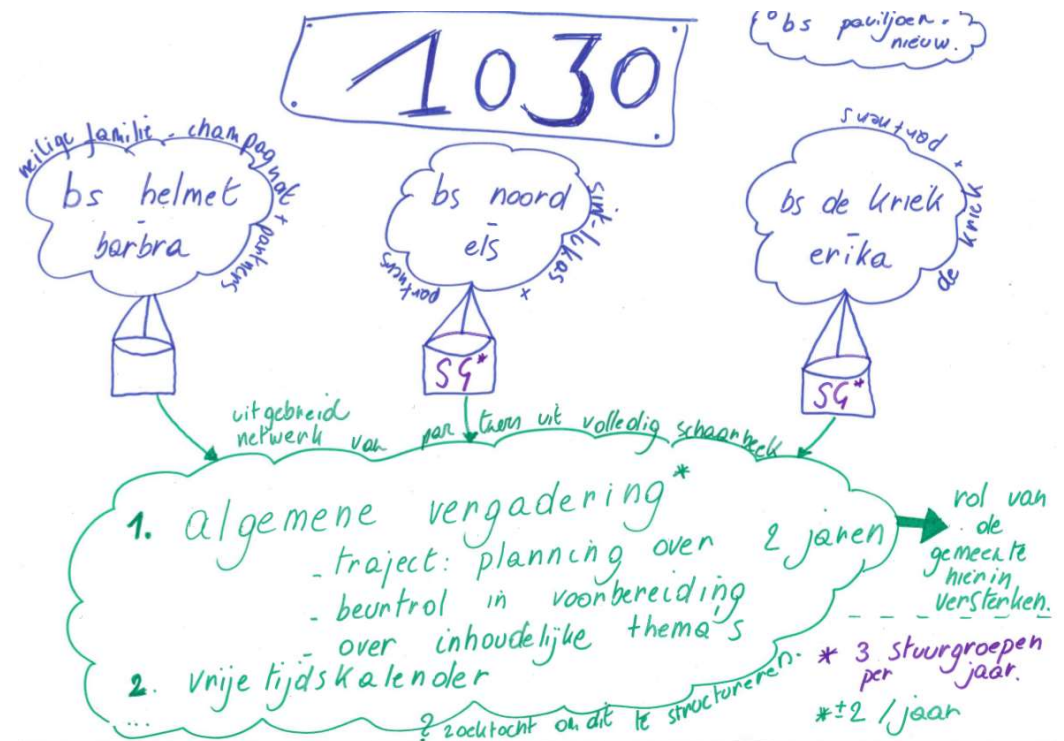 1030
bs paviljoen.
nieuw.
heilige familie - champagnat + partners
bs helmet
-
barbra
bs noord
-
els
sint-lukas + partners
bs de kriek
-
erika
de kriek + partners
SG*
SG*
uitgebreid
netwerk van partners uit volledig schaarbeek
1. algemene vergadering*
- traject: planning over 2 jaren
- beurtrol in voorbereiding
- over inhoudelijke thema's
2. vrije tijdskalender
...
? zoektocht om dit te structureren.
rol van
de
gemeente
hierin
versterken.
* 3 stuurgroepen
per jaar.
*±2 / jaar